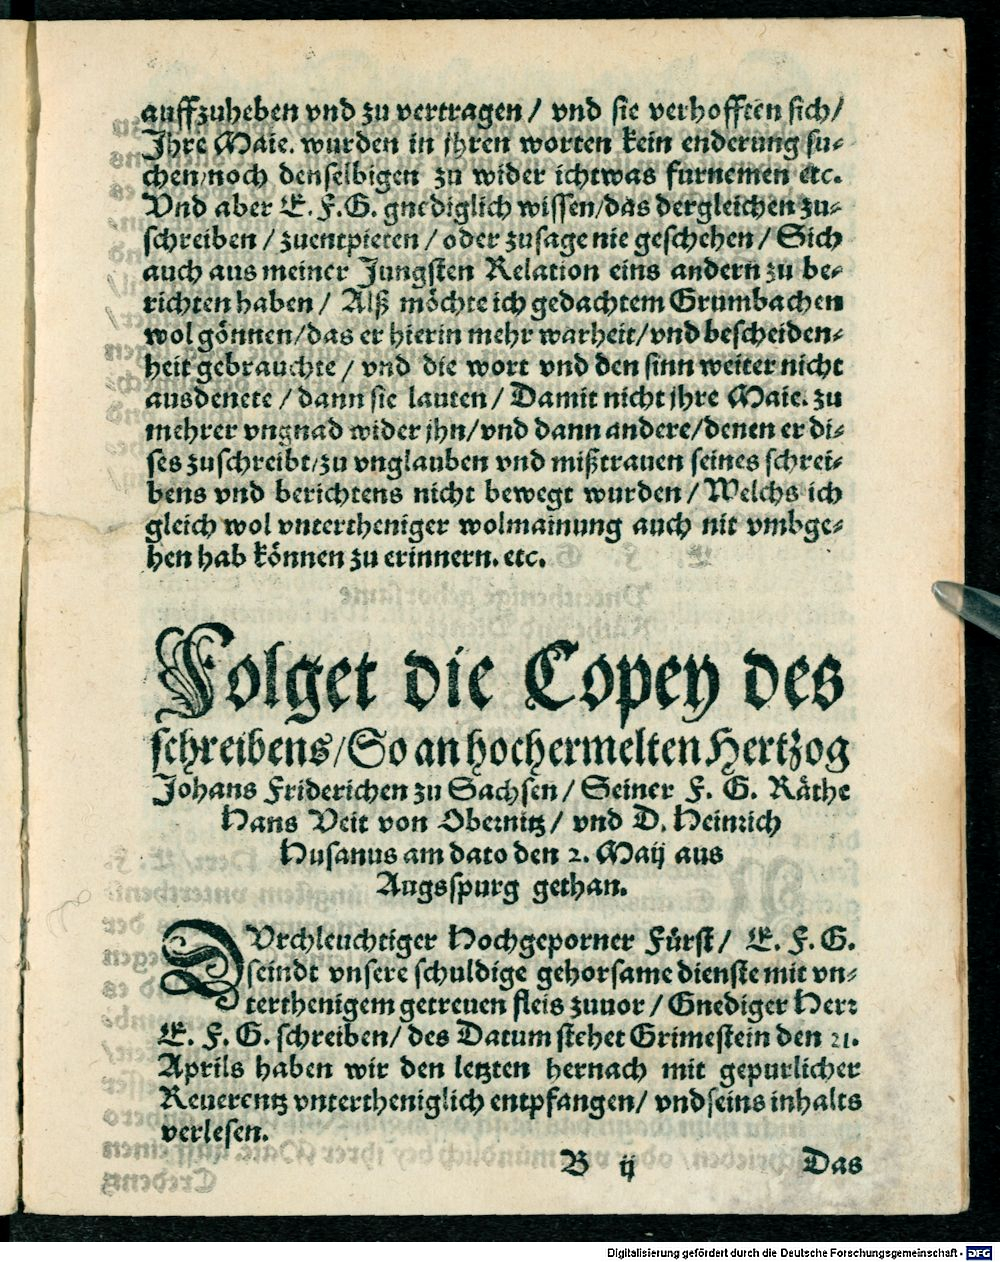 auffzuheben vnd zu vertragen / vnd sie verhofften sich /
Ihre Maie. wurden in jhren worten kein enderung su-
chen / noch denselbigen zu wider ichtwas furnemen etc.
Vnd aber E. F. G. gnediglich wissen / das dergleichen zu-
schreiben / zuentpieten / oder zusage nie geschehen / Sich
auch aus meiner Jungsten Relation eins andern zu be-
richten haben / Alß möchte ich gedachtem Grumbachen
wol gönnen / das er hierin mehr warheit / vnd bescheiden-
heit gebrauchte / vnd die wort vnd den sinn weiter nicht
ausdenete / dann sie lauten / Damit nicht jhre Maie. zu
mehrer vngnad wider jhn / vnd dann andere / denen er di-
ses zuschreibt / zu vnglauben vnd mißtrauen seines schrei-
bens vnd berichtens nicht bewegt wurden / Welchs ich
gleich wol vntertheniger wolmainung auch nit vmbge-
hen hab können zu erinnern. etc.
Folget die Copey des
schreibens / So an hochermelten Hertzog
Johans Friderichen zu Sachsen / Seiner F. G. Räthe
Hans Veit von Obernitz / vnd D. Heinrich
Husanus am dato den 2. Maij aus
Augsspurg gethan.
DVrchleuchtiger Hochgeporner Fürst / E. F. G.
seindt vnsere schuldige gehorsame dienste mit vn-
terthenigem getreuen fleis zuuor / Gnediger Herr
E. F. G. schreiben / des Datum stehet Grimestein den 21.
Aprils haben wir den letzten hernach mit gepurlicher
Reuerentz vntertheniglich entpfangen / vnd seins inhalts
verlesen.
B ij Das
Digitalisierung gefördert durch die Deutsche Forschungsgemeinschaft - DFG